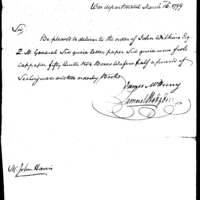 War department March 16. 1799
Sir,
Be pleased to deliver to the order of John Wilkins Esq
2. M. General Six quire letter paper Six quire fools
cap paper fifty Quills two Boxes Wafers half a pound of
Sealing wax
James McHenry
Samuel Hodgdon
Mr John Harris